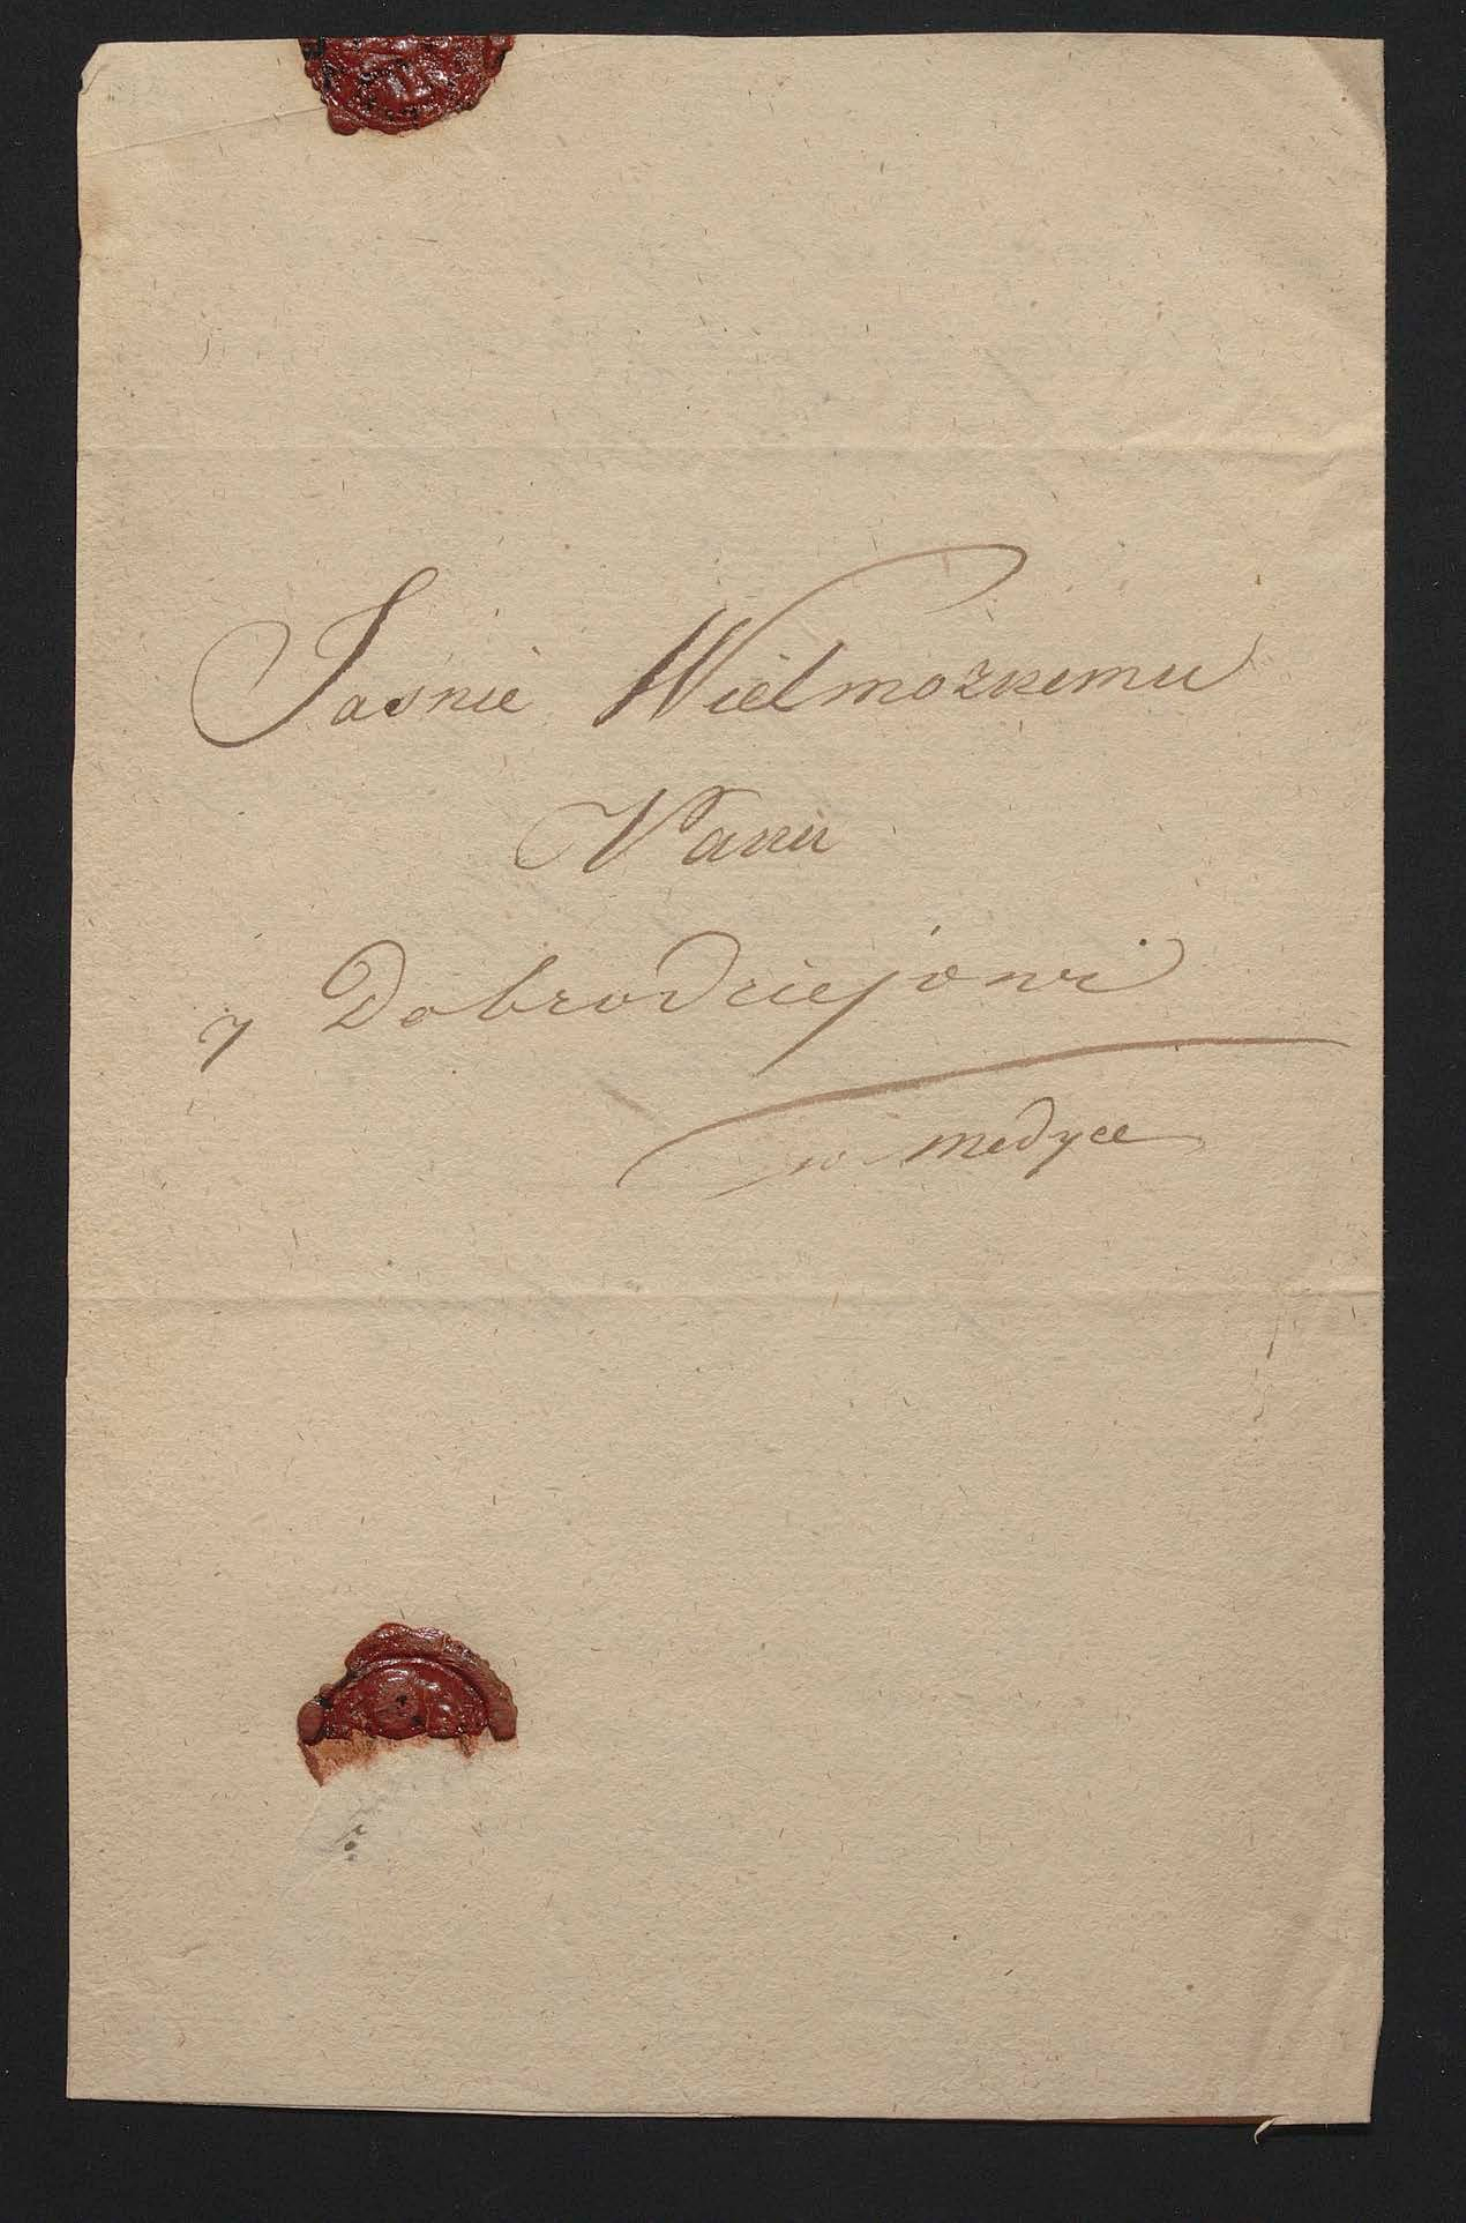 Jasnie Wielmoznemu
Panu
y Dobrodziejowi
w Medyce